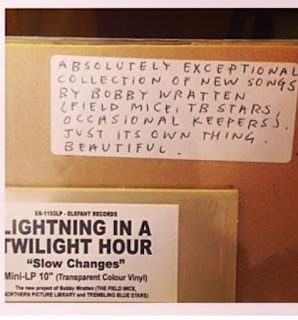 ABSOLUTELY EXCEPTIONAL
COLLECTION OF NEW SONGS
BY BOBBY WRATTEN
(FIELD MICE, TB STARS,
OCCASIONAL KEEPERS).
JUST ITS OWN THING.
BEAUTIFUL.
ER-1193LP - ELEFANT RECORDS
LIGHTNING IN A
TWILIGHT HOUR
"Slow Changes"
Mini-LP 10" (Transparent Colour Vinyl)
The new project of Bobby Wratten (THE FIELD MICE,
NORTHERN PICTURE LIBRARY and TREMBLING BLUE STARS)